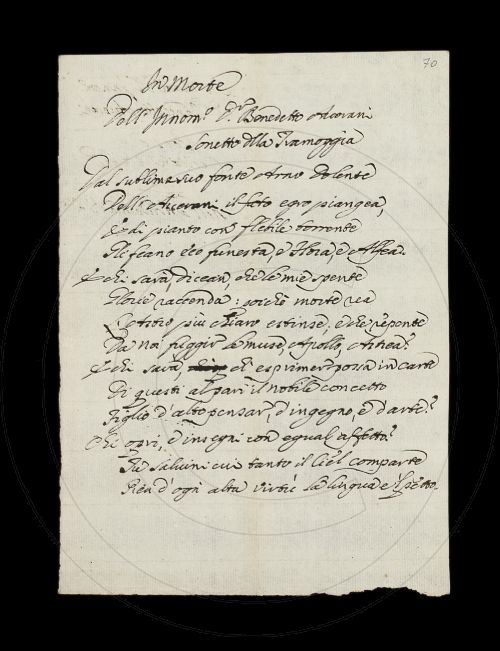 70
In Morte
Dell' Innom.º S.r Benedetto Averani
Sonetto Alla Tramoggia
Dal sublime suo fonte Arno dolente
Dell' Averani il fato egro piangea,
E di pianto con flebile torrente
Gli feano eco funesta, e Flora, e Alfea.
E chi sarà, dicean, che le mie spente
Glorie raccenda: poiche morte rea
L'Astro piu chiaro estinse, e che repente
Da noi fuggir le muse, Apollo, Astrea?
E chi sarà, ch' esprimer possa in carte
Di questi al pari il nobile concetto
Figlio d'alto pensar, d'ingegno, e d'arte?
Chi opri, e insegni con egual affetto?
Tu Salvini cui tanto il Ciel comparte
Rieu d'ogni alta virtù la lingua e 'l petto.